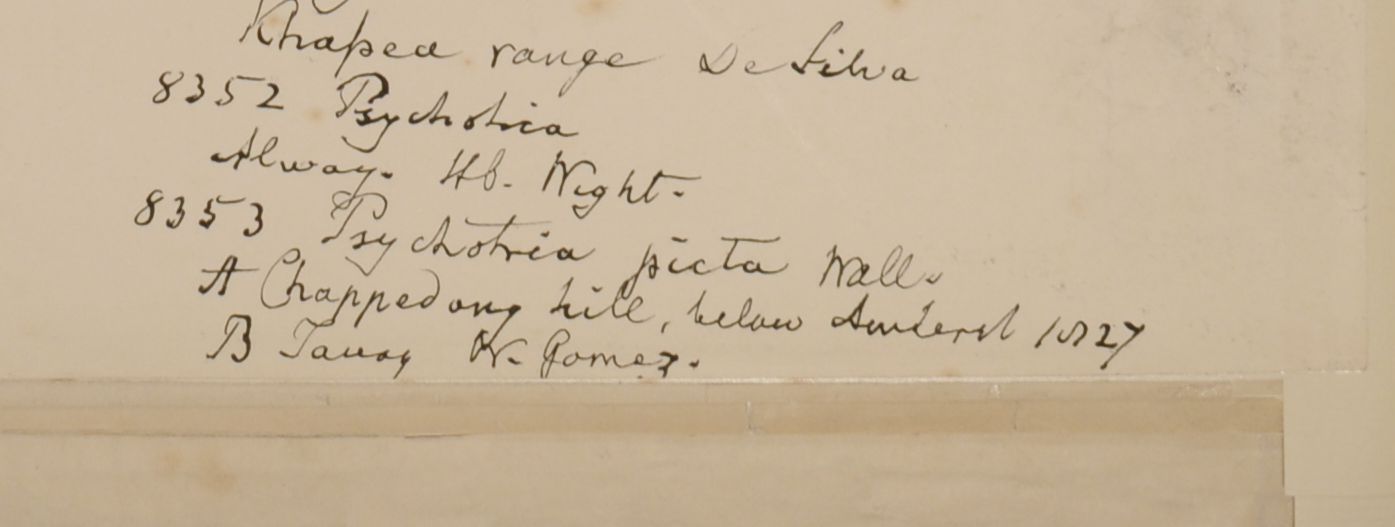 Khapea range De Silva
8352 Psychotria
Alway. Hb. Wight.
8353 Psychotria picta Wall.
A Chappedong hill, below Amherst 1827
B Tavoy W. Gomez.